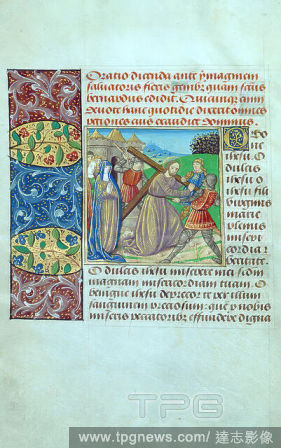 Oratio dicenda ante ymaginem
salvatoris flexis genibus quam sanctus
bernardus edidit. Quicumque enim
hanc quotidie dixerit omnes
O bone
ihesu. O
dulcis
ihesu o
ihesu fili
virginis
marie
plenus
misericordi
O dulcis ihesu miserere mei secundum
magnam misericordiam tuam. O
benigne ihesu deprecor te per illum
sanguinem preciosum: que pro nobis
miseris peccatoribus effundere digna
TPG
www.tpgnews.com/ 達志影像